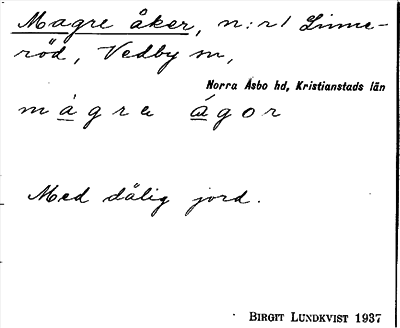 Magre åker, n:r 1 Linne-
röd, Vedby sn,
Norra Åsbo hd, Kristianstads län
mágra ágor
Med dålig jord.
BIRGIT LUNDKVIST 1937